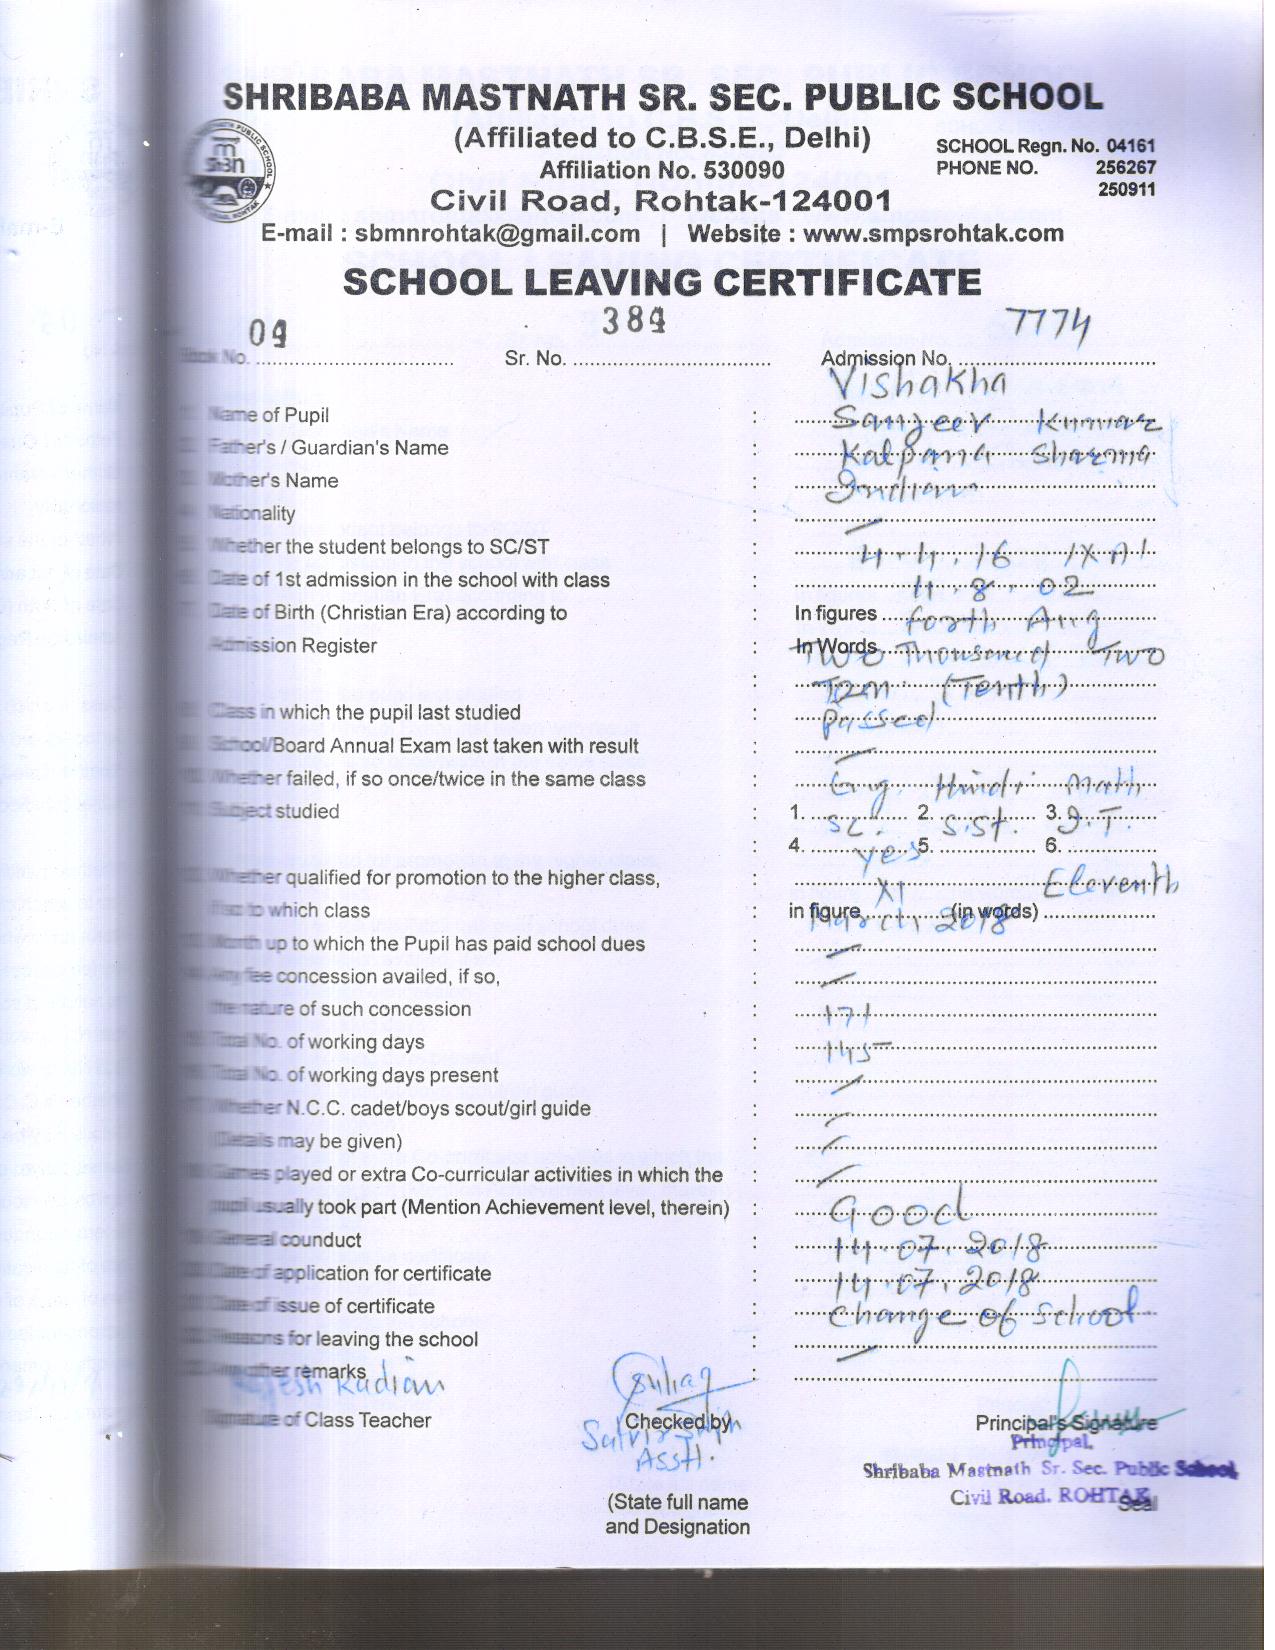 SHRIBABA MASTNATH SR. SEC. PUBLIC SCHOOL
(Affiliated to C.B.S.E., Delhi)
Affiliation No. 530090
SCHOOL Regn. No. 04161
PHONE NO. 256267
250911
Civil Road, Rohtak-124001
E-mail : sbmnrohtak@gmail.com | Website : www.smpsrohtak.com
SCHOOL LEAVING CERTIFICATE
Book No. 04 Sr. No. 384 Admission No. 7774
Name of Pupil : Vishakha
Father's / Guardian's Name : Sanjeev Kumar
Mother's Name : Kalpana Sharma
Nationality : Indian
Whether the student belongs to SC/ST :
Date of 1st admission in the school with class : 4.4.16 IX
Date of Birth (Christian Era) according to : In figures 4.8.02
Admission Register : In Words forth Aug
Two Thousand Two
Class in which the pupil last studied : (Tenth)
School/Board Annual Exam last taken with result : Passed
Whether failed, if so once/twice in the same class :
Subject studied : 1. Eng. 2. Hindi 3. Math
4. Sc. 5. S.St. 6. I.T.
Whether qualified for promotion to the higher class, : yes
to which class : in figure XI (in words) Eleventh
Month up to which the Pupil has paid school dues : March 2018
Any fee concession availed, if so, :
the nature of such concession :
Total No. of working days : 171
Total No. of working days present : 145
Whether N.C.C. cadet/boys scout/girl guide :
(Details may be given) :
Games played or extra Co-curricular activities in which the :
pupil usually took part (Mention Achievement level, therein) :
General counduct : Good
Date of application for certificate : 14.07.2018
Date of issue of certificate : 14.07.2018
Reasons for leaving the school : Change of School
Any other remarks :
Kadian
Signature of Class Teacher Checked by Principal's Signature
Asstt.
Principal,
Shribaba Mastnath Sr. Sec. Public School
Civil Road, ROHTAK
Seal
(State full name
and Designation